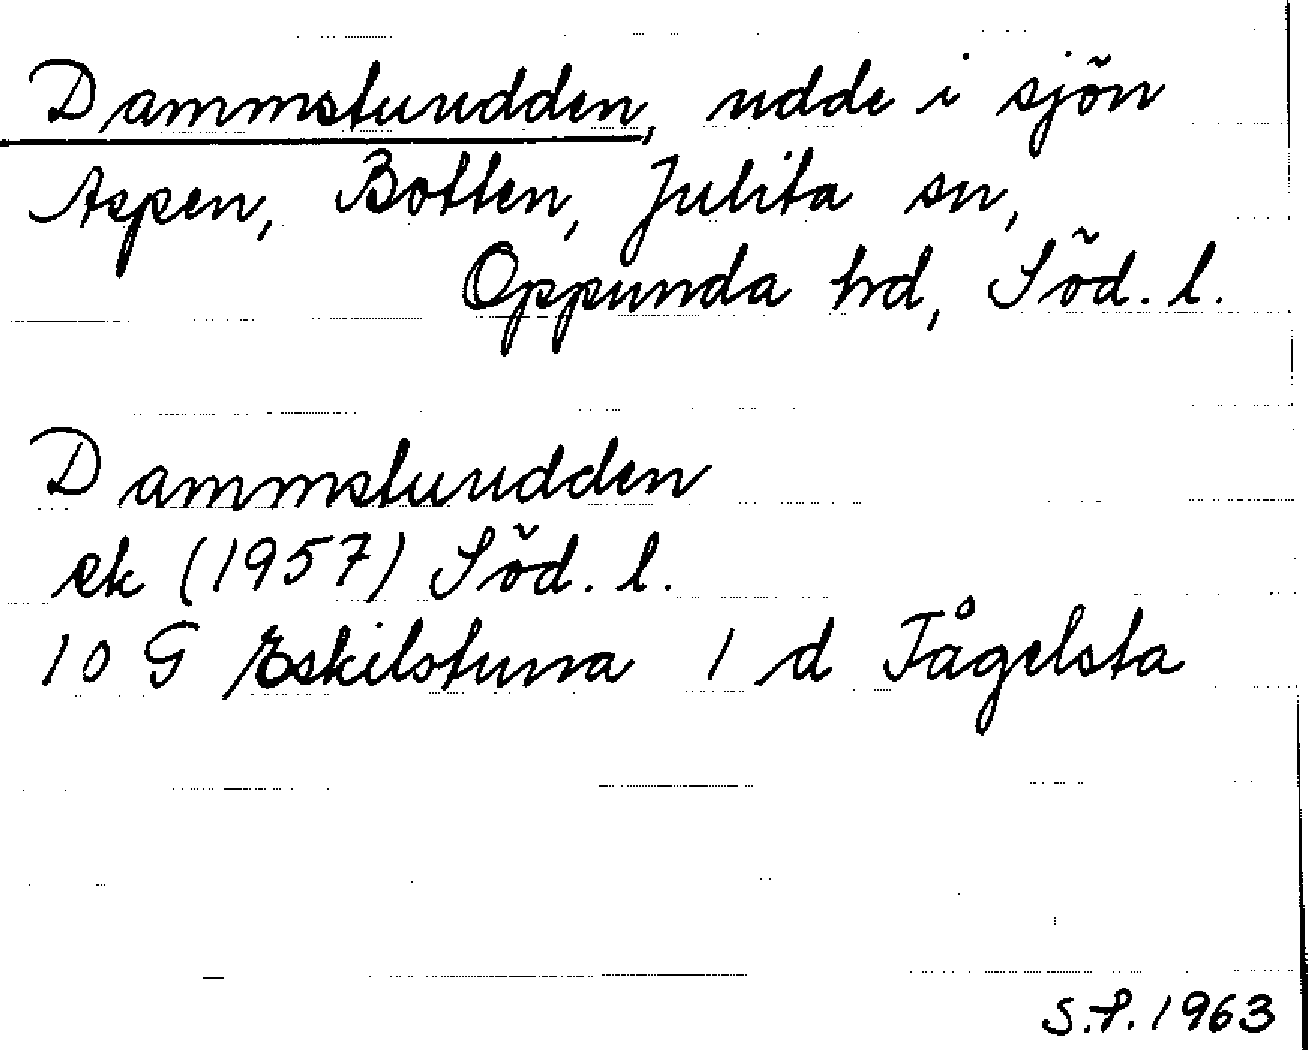 Dammstuudden, udde i sjön
Aspen, Botten, Julita sn,
Oppunda hd, Söd. l.
Dammstuudden
ek (1957) Söd. l.
10 G Eskilstuna 1 d Fågelsta
S.P. 1963